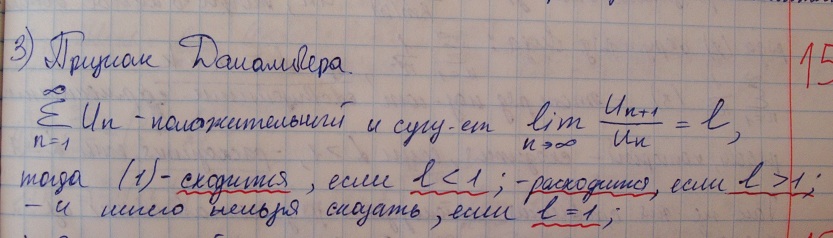 3) Признак Даламбера.
∞ ∑ n=1 Un - положительный и сущ-ет lim n→∞ Un+1/Un = l,
тогда (1) - сходится, если l < 1; - расходится, если l > 1;
- и ничего нельзя сказать, если l = 1;
15